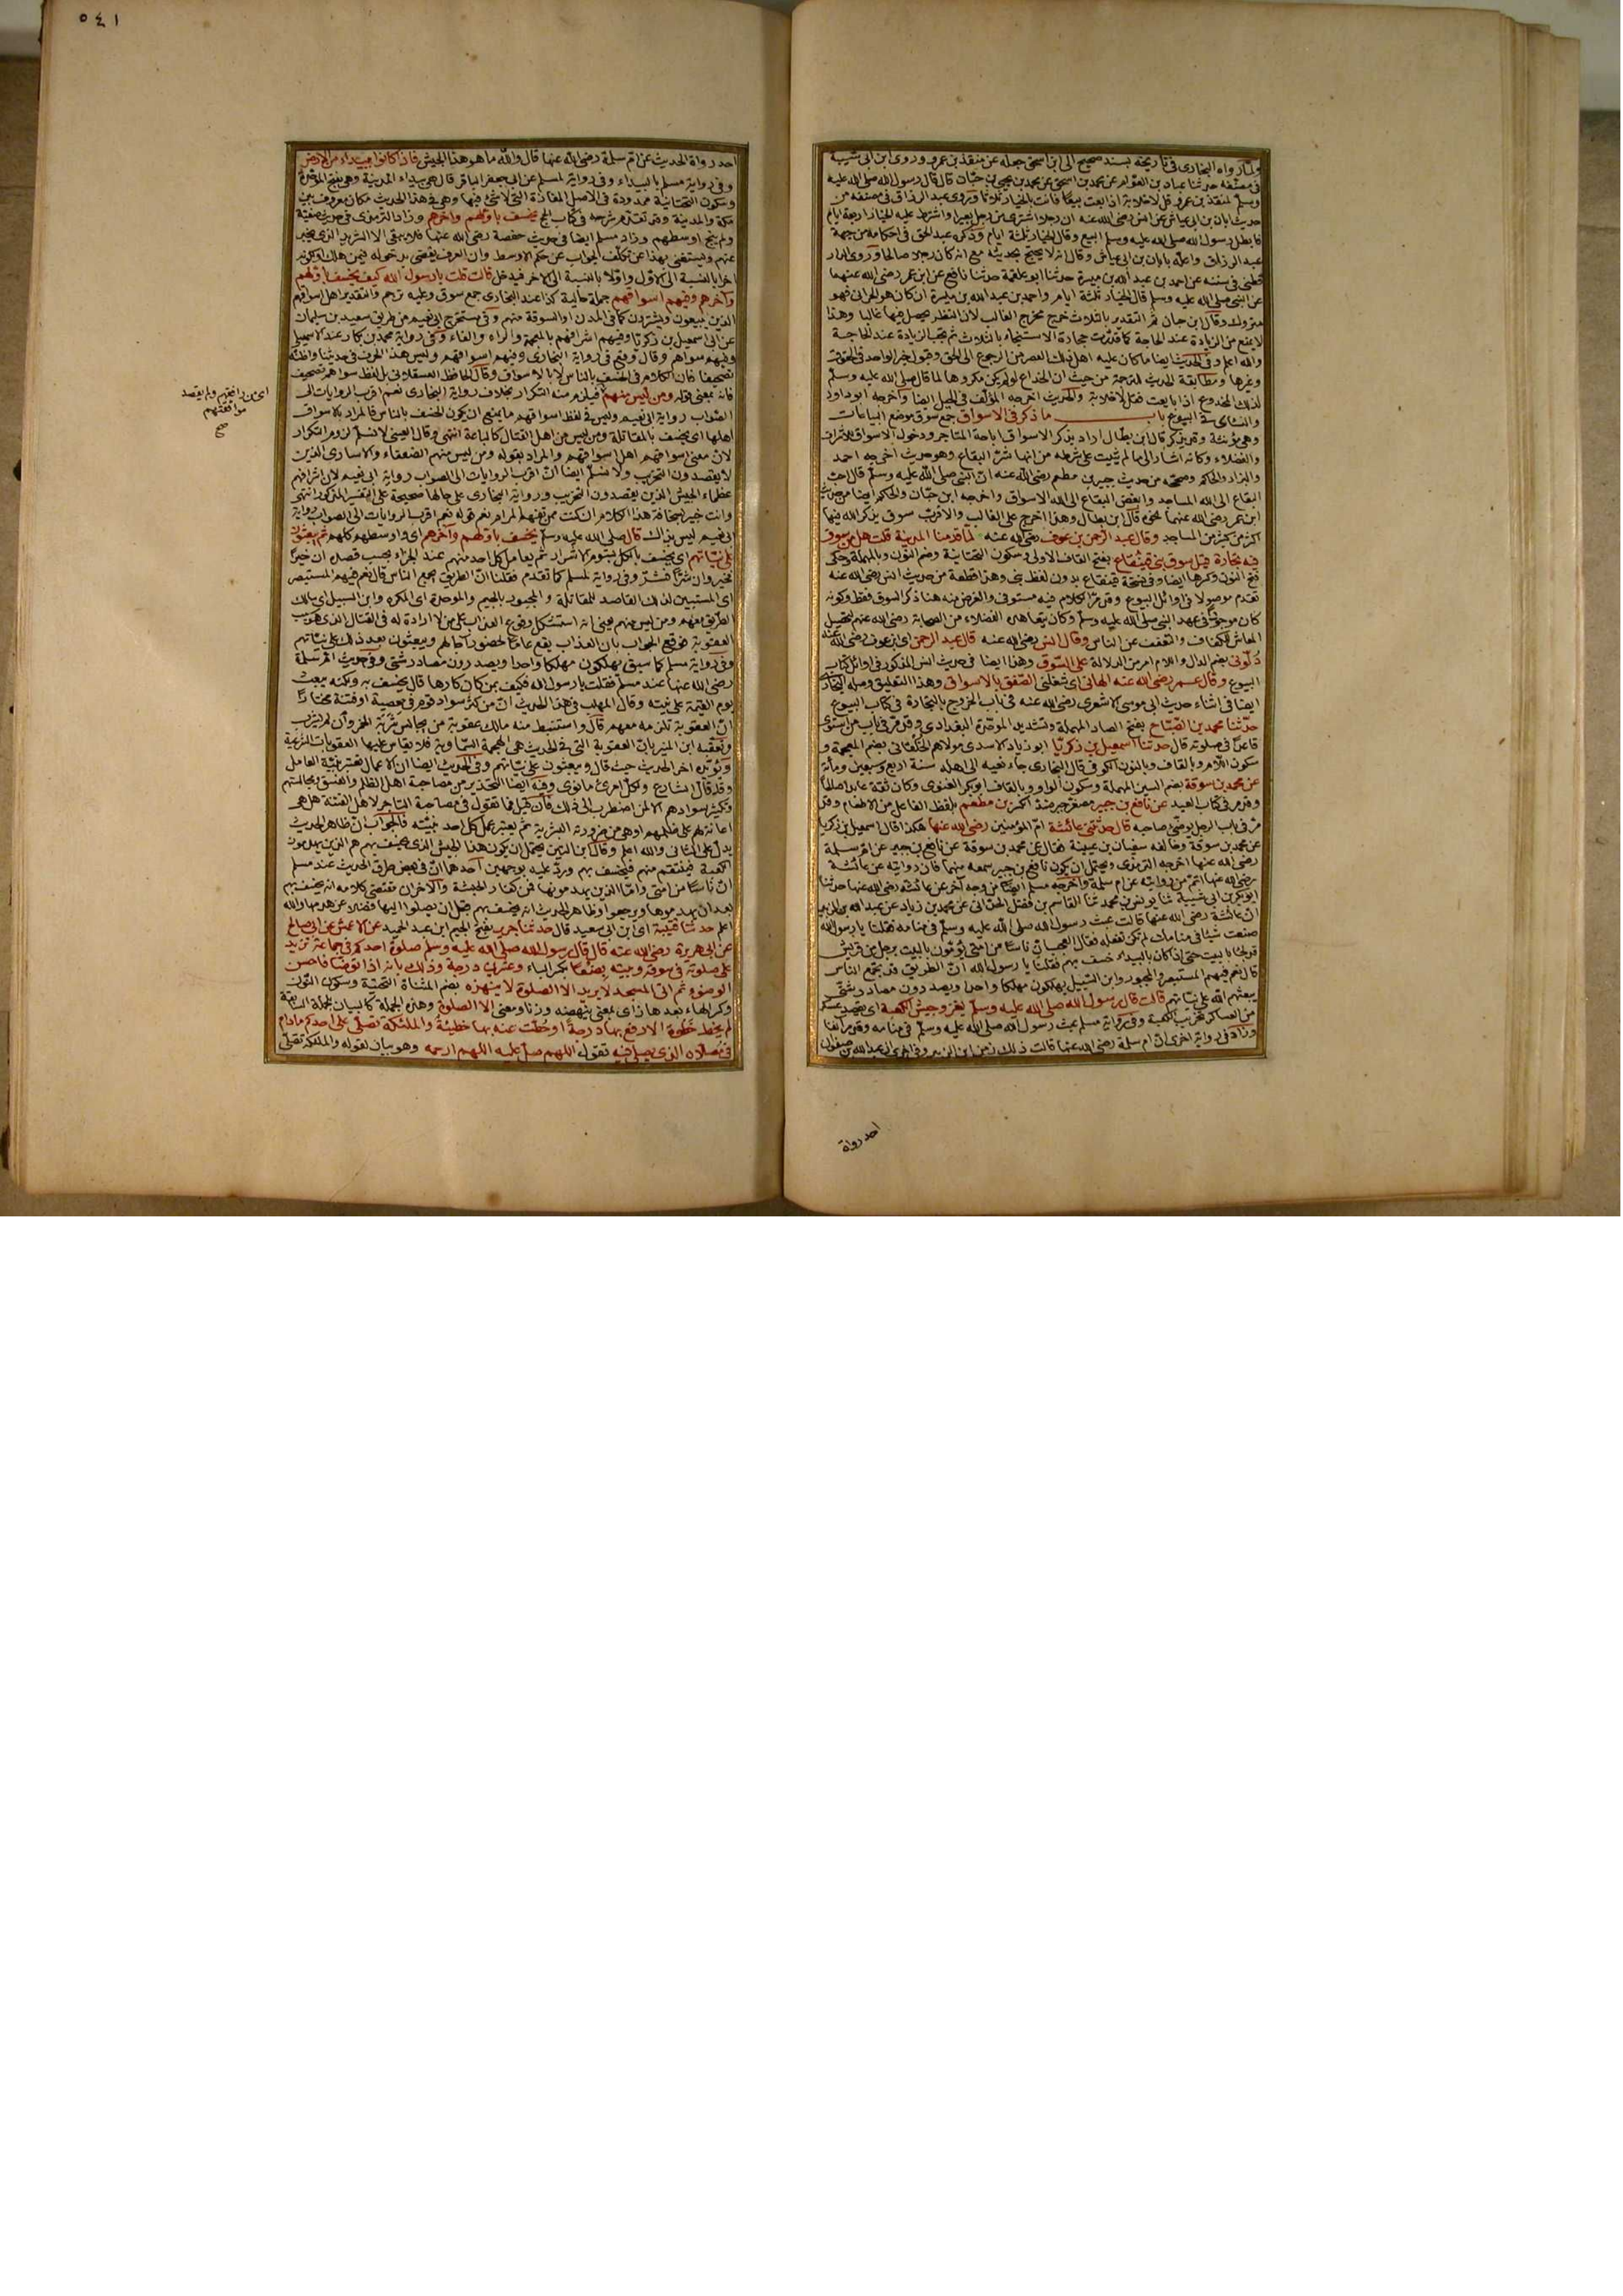 ولما رواه البخارى فى تاريخه بسند صحيح الى ابن اسحق جعله عن منقذ بن عمرو وروى ابن ابى شيبة
فى مصنفه حدثنا عباد بن العوام عن محمد بن اسحق عن محمد بن يحيى بن حبان قال قال رسول الله صلى الله عليه
وسلم لمنقذ بن عمرو قل لا خلابة اذا بعت بيعًا فانت بالخيار ثلاثا وروى عبد الرزاق فى مصنفه من
حديث ابان بن ابى عياش عن انس رضى الله عنه ان رجلا اشترى من رجل بعيرا واشترط عليه الخيار اربعة ايام
فابطل رسول الله صلى الله عليه وسلم البيع وقال الخيار ثلثة ايام وذكره عبد الحق فى احكامه من جهة
عبد الرزاق واعله بابان بن ابى عياش وقال انه لا يحتج بحديثه مع انه كان رجلا صالحا وروى الدار
قطنى فى سننه عن احمد بن عبد الله بن ميسرة حدثنا ابو علقمة حدثنا نافع عن ابن عمر رضى الله عنهما
عن النبى صلى الله عليه وسلم قال الخيار ثلثة ايام واحمد بن عبد الله بن ميسرة ان كان هو الحرانى فهو
متروك وقال ابن حبان ثم التقدير بالثلاث خرج مخرج الغالب لان النظر يحصل فيها غالبا وهذا
لا يمنع من الزيادة عند الحاجة كما قدرت حجارة الاستنجاء بالثلاث ثم تجب الزيادة عند الحاجة
والله اعلم وفى الحديث ايضا ما كان عليه اهل ذلك العصر من الرجوع الى الحق وقبول خبر الواحد فى الحقوق
وغيرها ومطابقة الحديث للترجمة من حيث ان الخداع لو لم يكن مكروها لما قال صلى الله عليه وسلم
لذلك المخدوع اذا بايعت فقل لا خلابة والحديث اخرجه المؤلف فى الحيل ايضا واخرجه ابو داود
والنسائى فى البيوع باب ما ذكر فى الاسواق جمع سوق موضع البياعات
وهى مؤنثة وقد يذكر قال ابن بطال اراد بذكر الاسواق اباحة المتاجر ودخول الاسواق للاشراف
والفضلاء وكانه اشار الى ما لم يثبت على شرطه من انها شر البقاع وهو حديث اخرجه احمد
والبزار والحاكم وصححه من حديث جبير بن مطعم رضى الله عنه ان النبى صلى الله عليه وسلم قال احب
البقاع الى الله المساجد وابغض البقاع الى الله الاسواق واخرجه ابن حبان والحاكم ايضا من حديث
ابن عمر رضى الله عنهما نحوه قال ابن بطال وهذا اخرج على الغالب والا فرب سوق يذكر الله فيها
اكثر من كثير من المساجد وقال عبد الرحمن بن عوف رضى الله عنه لما قدمنا المدينة قلت هل من سوق
فيه تجارة قيل سوق بنى قينقاع بفتح القاف الاولى وسكون التحتانية وضم النون وبالمهملة وحكى
فتح النون وكسرها ايضا وفى نسخة قينقاع بدون لفظ بنى وهذا قطعة من حديث انس رضى الله عنه
تقدم موصولا فى اوائل البيوع وقد مر الكلام فيه مستوفى والغرض منه هنا ذكر السوق فقط وكونه
كان موجودًا فى عهد النبى صلى الله عليه وسلم وكان يتعاهده الفضلاء من الصحابة رضى الله عنهم لتحصيل
المعاش للكفاف والتعفف عن الناس وقال انس رضى الله عنه قال عبد الرحمن اى ابن عوف رضى الله عنه
دلونى بضم الدال واللام امر من الدلالة على السوق وهذا ايضا فى حديث انس المذكور فى اوائل كتاب
البيوع وقال عمر رضى الله عنه الهانى اى شغلنى الصفق بالاسواق وهذا التعليق وصله البخارى
ايضا فى اثناء حديث ابى موسى الاشعرى رضى الله عنه فى باب الخروج بالتجارة فى كتاب البيوع
حدثنا محمد بن الصباح بفتح الصاد المهملة وتشديد الموحدة البغدادى وقد مر فى باب من استوى
قاعدًا فى صلوته قال حدثنا اسمعيل بن زكريا ابو زياد الاسدى مولاهم الخلقانى بضم المعجمة و
سكون اللام وبالقاف وبالنون الكوفى قال البخارى جاء نعيه الى اهله سنة اربع وسبعين ومائة
عن محمد بن سوقة بضم السين المهملة وسكون الواو وبالقاف ابو بكر الغنوى وكان ثقة عابدا صالحًا
وقد مر فى كتاب العيد عن نافع بن جبير مصغر جبر ضد الكسر بن مطعم بلفظ الفاعل من الاطعام وقد
مر فى باب الرجل يوضئ صاحبه قال حدثتنى عائشة ام المؤمنين رضى الله عنها هكذا قال اسمعيل بن زكريا
عن محمد بن سوقة وخالفه سفيان بن عيينة فقال عن محمد بن سوقة عن نافع بن جبير عن ام سلمة
رضى الله عنها اخرجه الترمذى ويحتمل ان يكون نافع بن جبير سمعه منهما فان روايته عن عائشة
رضى الله عنها اتم من روايته عن ام سلمة واخرجه مسلم ايضًا من وجه آخر عن عائشة رضى الله عنها حدثنا
ابو بكر بن ابى شيبة ثنا يونس بن محمد ثنا القاسم بن الفضل الحدانى عن محمد بن زياد عن عبد الله بن الزبير
ان عائشة رضى الله عنها قالت عبث رسول الله صلى الله عليه وسلم فى منامه فقلنا يا رسول الله
صنعت شيئا فى منامك لم تكن تفعله فقال العجب ان ناسًا من امتى يؤمون بالبيت برجل من قريش
قد لجأ بالبيت حتى اذا كان بالبيداء خسف بهم فقلنا يا رسول الله ان الطريق قد يجمع الناس
قال نعم فيهم المستبصر والمجبور وابن السبيل يهلكون مهلكا واحدا ويصدرون مصادر شتى
يبعثهم الله على نياتهم قالت قال رسول الله صلى الله عليه وسلم يغزو جيش الكعبة اى يقصد عسكر
من العساكر تخريب الكعبة وفى رواية مسلم عبث رسول الله صلى الله عليه وسلم فى منامه وقد مر آنفا
وزاد فى رواية اخرى ان ام سلمة رضى الله عنها قالت ذلك زمن ابن الزبير وفى اخرى ان عبد الله بن صفوان
احد رواة
٥٤١
احد رواة الحديث عن ام سلمة رضى الله عنها قال والله ما هو هذا الجيش فاذا كانوا ببيداء من الارض
وفى رواية مسلم بالبيداء وفى رواية لمسلم عن ابى جعفر الباقر قال هى بيداء المدينة وهى بفتح الموحدة
وسكون التحتانية ممدودة فى الاصل المفازة التى لا شئ فيها وهى فى هذا الحديث مكان معروف بين
مكة والمدينة وقد تقدم شرحه فى كتاب الحج يخسف باولهم وآخرهم وزاد الترمذى فى حديث صفية
ولم ينج اوسطهم وزاد مسلم ايضا فى حديث حفصة رضى الله عنها فلا يبقى الا الشريد الذى يخبر
عنهم ويستغنى بهذا عن تكلف الجواب عن حكم الاوسط وان العرف يقضى بدخوله فيمن هلك او لكونه
اخرا بالنسبة الى الاول واولا بالنسبة الى الاخر فيدخل قالت قلت يا رسول الله كيف يخسف باولهم
وآخرهم وفيهم اسواقهم جملة حالية كذا عند البخارى جمع سوق وعليه ترجم والتقدير اهل اسواقهم
الذين يبيعون ويشترون كما فى المدن او السوقة منهم وفى مستخرج ابى نعيم من طريق سعيد بن سليمان
عن ابى اسمعيل بن زكريا وفيهم اشرافهم بالمعجمة والراء والفاء وفى رواية محمد بن بكار عند الاسمعيلى
وفيهم سواهم وقال وقع فى رواية البخارى وفيهم اسواقهم وليس هذا الحرف فى حديثنا واظنه
تصحيفا فان الكلام فى الخسف بالناس لا بالاسواق وقال الحافظ العسقلانى بل لفظ سواهم تصحيف
فانه بمعنى قوله ومن ليس منهم فيلزم منه التكرار بخلاف رواية البخارى نعم اقرب الروايات الى
الصواب رواية ابى نعيم وليس فى لفظ اسواقهم ما يمنع ان يكون الخسف بالناس فالمراد بالاسواق
اهلها اى يخسف بالمقاتلة ومن ليس من اهل القتال كالباعة انتهى وقال العينى لا نسلم لزوم التكرار
لان معنى اسواقهم اهل اسواقهم والمراد بقوله ومن ليس منهم الضعفاء والاسارى الذين
لا يقصدون التخريب ولا نسلم ايضا ان اقرب الروايات الى الصواب رواية ابى نعيم لان اشرافهم
عظماء الجيش الذين يقصدون التخريب ورواية البخارى على حالها صحيحة على التفسير المذكور انتهى
وانت خبير بسخافة هذا الكلام ان كنت ممن تفهم المرام نعم قوله نعم اقرب الروايات الى الصواب رواية
ابى نعيم ليس بذاك قال صلى الله عليه وسلم يخسف باولهم وآخرهم اى واوسطهم كلهم ثم يبعثون
على نياتهم اى يخسف بالكل بشؤم الاشرار ثم يعامل كل احد منهم عند الجزاء بحسب قصده ان خيرًا
فخير وان شرًا فشر وفى رواية لمسلم كما تقدم فقلنا ان الطريق يجمع الناس قال نعم فيهم المستبصر
اى المستبين لذلك القاصد للمقاتلة والمجبور بالجيم والموحدة اى المكره وابن السبيل اى سالك
الطريق معهم ومن ليس منهم يعنى انه استشكل وقوع العذاب على من لا ارادة له فى القتال الذى هو سبب
العقوبة فوقع الجواب بان العذاب يقع عامًا لحضور آجالهم ويبعثون بعد ذلك على نياتهم
وفى رواية مسلم كما سبق يهلكون مهلكا واحدا ويصدرون مصادر شتى وفى حديث ام سلمة
رضى الله عنها عند مسلم فقلت يا رسول الله فكيف بمن كان كارها قال يخسف به ولكنه يبعث
يوم القيمة على نيته وقال المهلب فى هذا الحديث ان من كثر سواد قوم فى معصية او فتنة مختارًا
ان العقوبة تلزمه معهم قال واستنبط منه مالك عقوبة من يجالس شربة الخمر وان لم يشرب
وتعقبه ابن المنير بان العقوبة التى فى الحديث هى الهجمة السماوية فلا يقاس عليها العقوبات الشرعية
ويؤيده اخر الحديث حيث قال ويبعثون على نياتهم وفى الحديث ايضا ان الاعمال تعتبر بنية العامل
وقد قال الشارع ولكل امرئ ما نوى وفيه ايضا التحذير من مصاحبة اهل الظلم والفسق ومجالستهم
وتكثير سوادهم الا لمن اضطر الى ذلك فان قيل فما تقول فى مصاحبة التاجر لاهل الفتنة هل هى
اعانة لهم على ظلمهم او هى من ضرورة البشرية ثم يعتبر عمل كل احد بنيته فالجواب ان ظاهر الحديث
يدل على الثانى والله اعلم وقال ابن التين يحتمل ان يكون هذا الجيش الذى يخسف بهم هم الذين يهدمون
الكعبة فينتقم منهم فيخسف بهم ورد عليه بوجهين احدهما ان فى بعض طرق الحديث عند مسلم
ان ناسًا من امتى واما الذين يهدمونها فمن كفار الحبشة والآخر ان مقتضى كلامه انه يخسف بهم
بعد ان يهدموها ويرجعوا وظاهر الحديث انه يخسف بهم قبل ان يصلوا اليها فضلا عن هدمها والله
اعلم حدثنا قتيبة اى ابن ابى سعيد قال حدثنا جرير بفتح الجيم ابن عبد الحميد عن الاعمش عن ابى صالح
عن ابى هريرة رضى الله عنه قال قال رسول الله صلى الله عليه وسلم صلوة احدكم فى جماعة تزيد
على صلوته فى سوقه وبيته بضعًا بكسر الباء وعشرين درجة وذلك بانه اذا توضأ فاحسن
الوضوء ثم اتى المسجد لا يريد الا الصلوة لا ينهزه بضم المثناة التحتية وسكون النون
وكسر الهاء بعدها زاى بمعنى ينهضه وزنا ومعنى الا الصلوة وهذه الجملة كالبيان للجملة السابقة
لم يخط خطوة الا رفع بها درجة او حطت عنه بها خطيئة والملئكة تصلى على احدكم ما دام
فى مصلاه الذى يصلى فيه تقول اللهم صل عليه اللهم ارحمه وهو بيان لقوله والملئكة تصلى
موافقتهم
صح